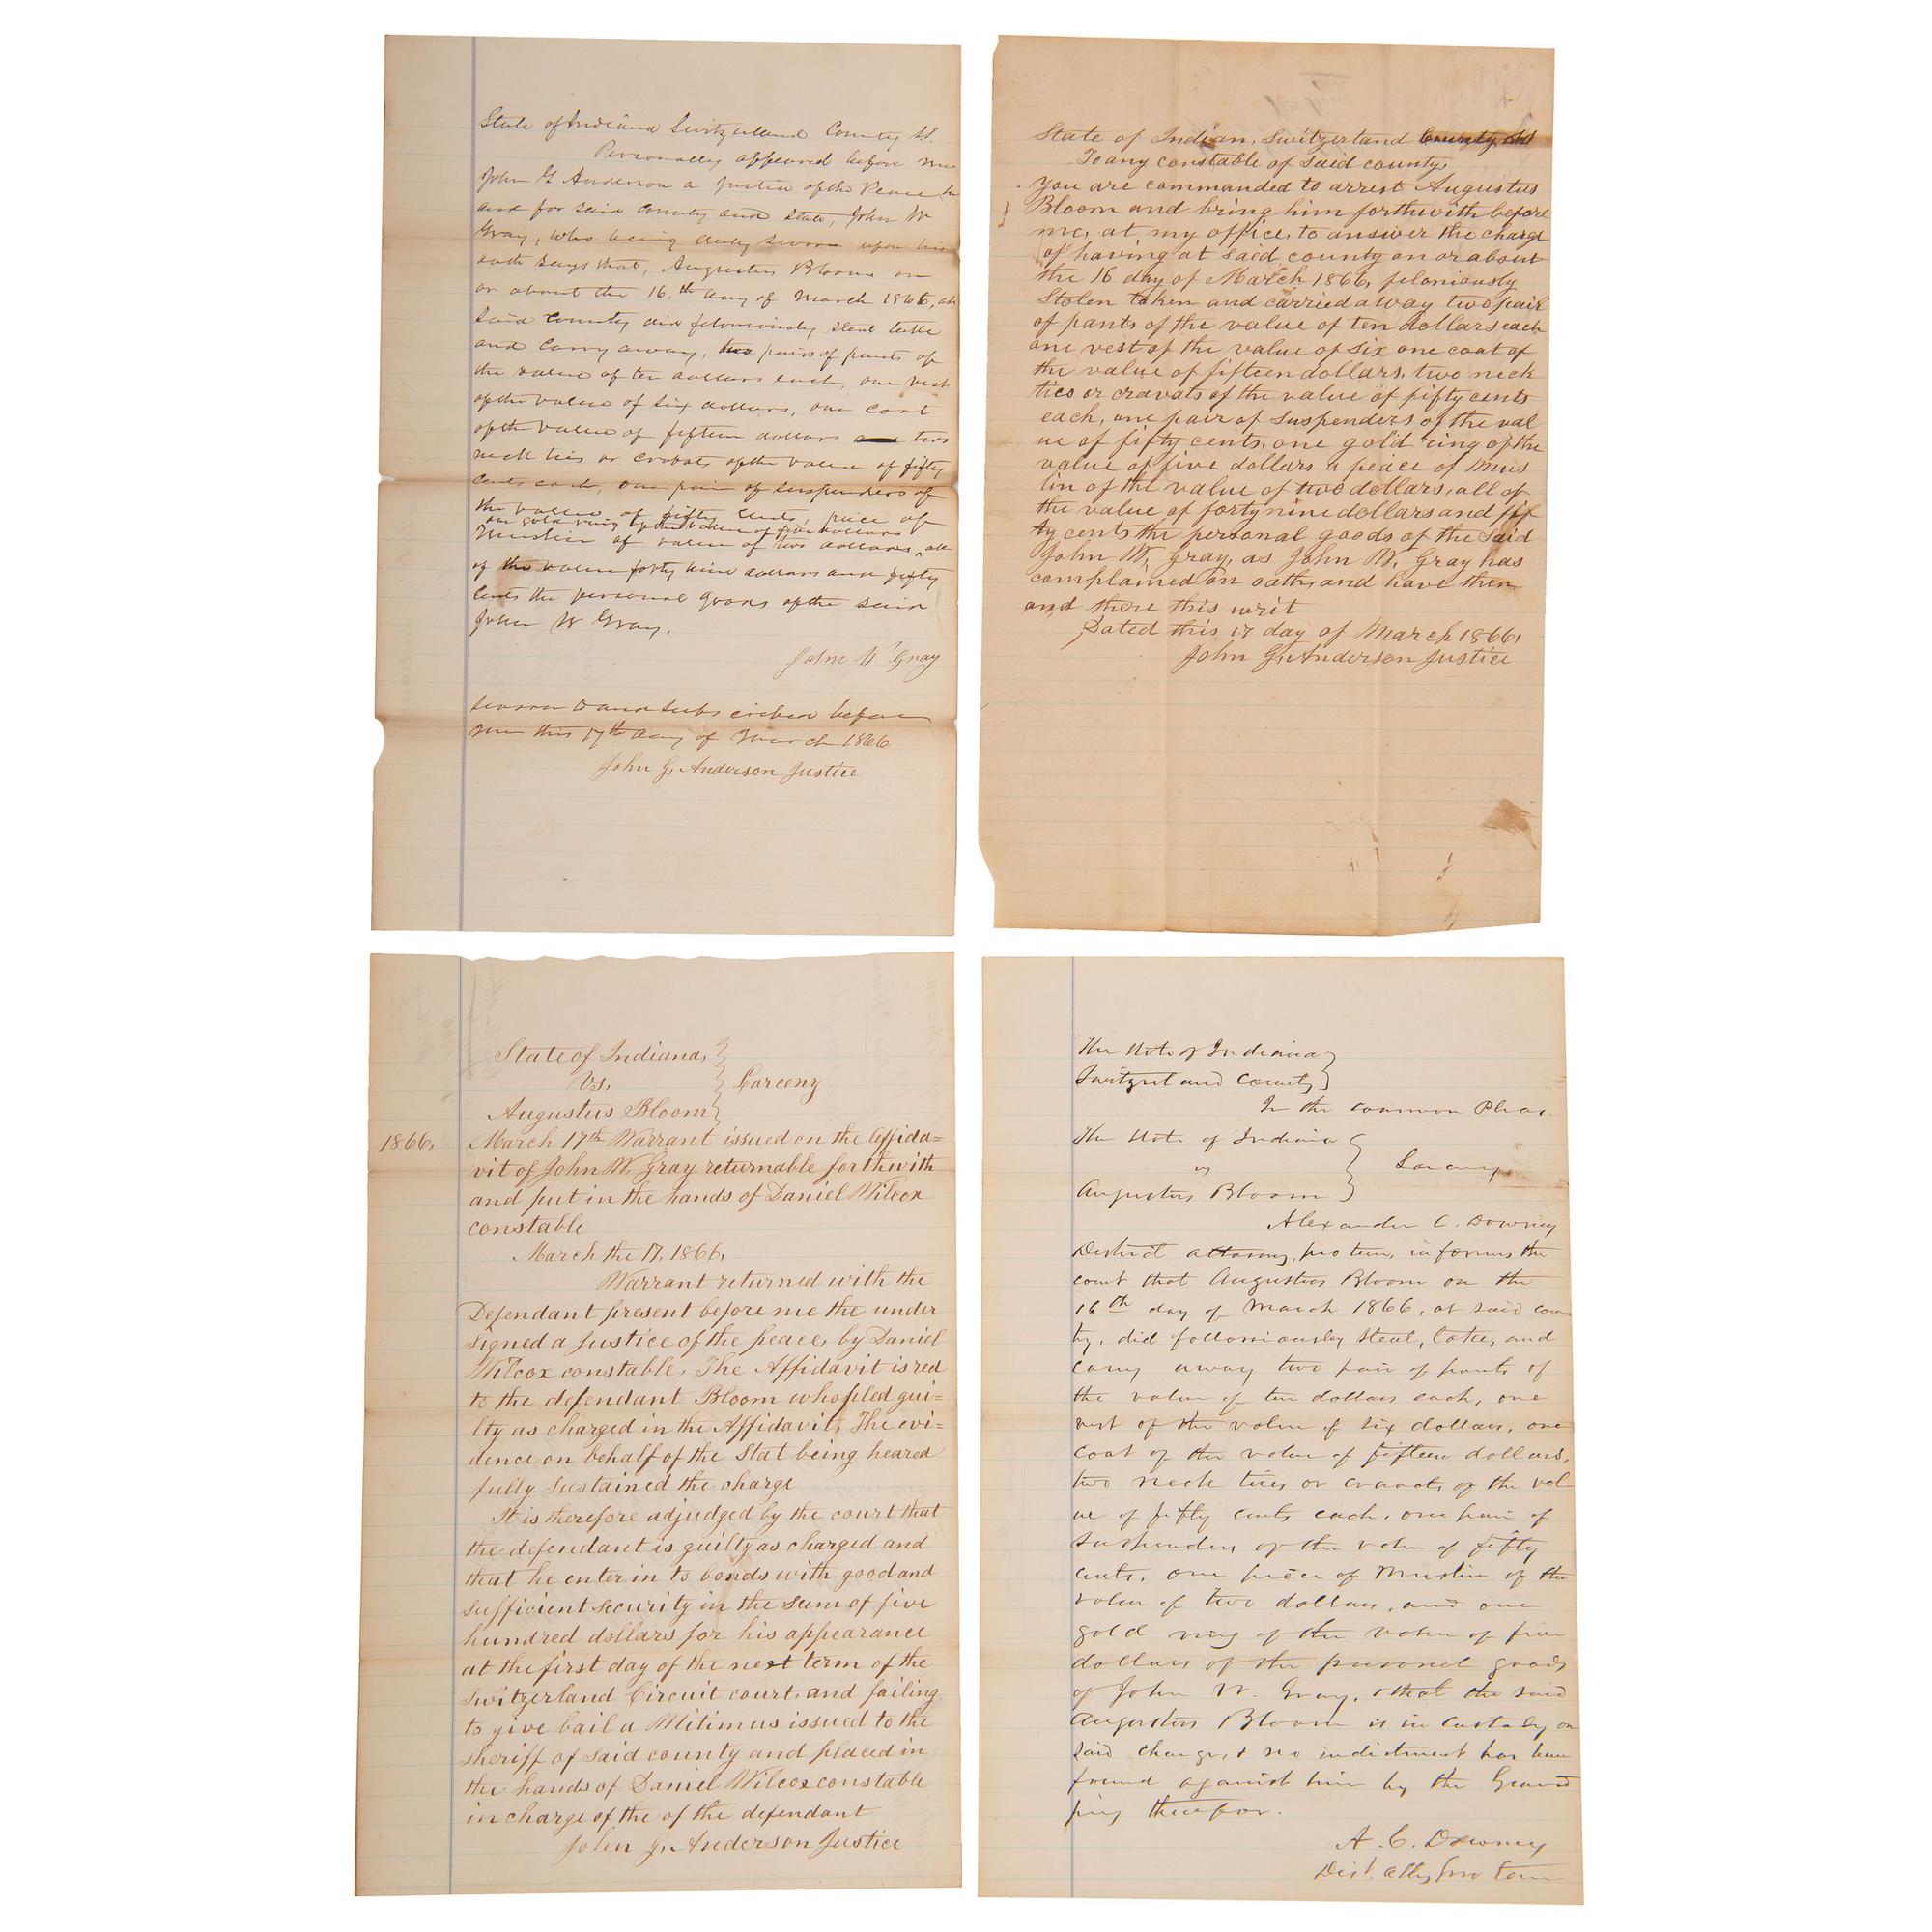 State of Indiana Switzerland County SS.
Personally appeared before me
John G Anderson a Justice of the Peace in
and for said county and state, John W
Gray, who being duly sworn upon his
oath says that, Augustus Bloom on
or about the 16th day of March 1866, at
said county did feloniously steal take
and carry away, two pairs of pants of
the value of ten dollars each, one vest
of the value of six dollars, one coat
of the value of fifteen dollars two
neck ties or crobats of the value of fifty
cents each, one pair of suspenders of
the value of fifty cents, piece of
one gold ring of the value of five dollars
Muslin of value of two dollars, all
of the value forty nine dollars and fifty
cents the personal goods of the said
John W Gray.
John W Gray
Sworn to and subscribed before
me this 17th day of March 1866
John G. Anderson Justice
State of Indian, Switzerland County SS
To any constable of said county,
you are commanded to arrest Augustus
Bloom and bring him forthwith before
me, at my office, to answer the charge
of having at said county on or about
the 16 day of March 1866, feloniously
stolen taken and carried away two pair
of pants of the value of ten dollars each
one vest of the value of six one coat of
the value of fifteen dollars, two neck
ties or cravats of the value of fifty cents
each, one pair of suspenders of the val
ue of fifty cents, one gold ring of the
value of five dollars a peace of Mus
lin of the value of two dollars, all of
the value of forty nine dollars and fif
ty cents the personal goods of the said
John W, Gray, as John W, Gray has
complained on oath, and have then
and there this writ
Dated this 17 day of March 1866,
John G, Anderson Justice
State of Indiana,
Vs, Larceny
Augustus Bloom
1866, March 17th Warrant issued on the Affida=
vit of John W, Gray returnable forthwith
and put in the hands of Daniel Wilcox
constable
March the 17, 1866,
Warrant returned with the
Defendant present before me the under
signed a Justice of the peace, by Daniel
Wilcox constable, The Affidavit is red
to the defendant Bloom who pled gui=
lty as charged in the Affidavit, The evi=
dence on behalf of the Stat being heared
fully sustained the charge
It is therefore adjudged by the court that
the defendant is guilty as charged and
that he enter in to bonds with good and
sufficient security in the sum of five
hundred dollars for his appearance
at the first day of the next term of the
Switzerland Circuit court, and failing
to give bail a Mitimus issued to the
sheriff of said county and placed in
the hands of Daniel Wilcox constable
in charge of the of the defendant
John G. Anderson Justice
The State of Indiana
Switzerland County
In the Common Pleas.
The State of Indiana
vs Larceny
Augustus Bloom
Alexander C. Downey
District attorney, pro tem, informs the
court that Augustus Bloom on the
16th day of March 1866, at said coun
ty, did felloniousley steal, take, and
carry away two pair of pants of
the value of ten dollars each, one
vest of the value of six dollars, one
coat of the value of fifteen dollars,
two neck ties or cravats of the val
ue of fifty cents each, one pair of
suspenders of the value of fifty
cents, one piece of Muslin of the
value of two dollars, and one
gold ring of the value of five
dollars of the personal goods
of John W. Gray, & that the said
Augustus Bloom is in custody on
said charge, & no indictment has been
found against him by the Grand
jury therefor.
A. C. Downey
Dist. atty pro tem